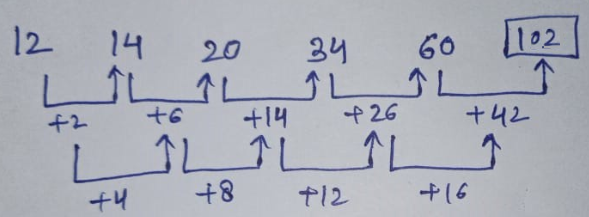 12 14 20 34 60 102
+2 +6 +14 +26 +42
+4 +8 +12 +16